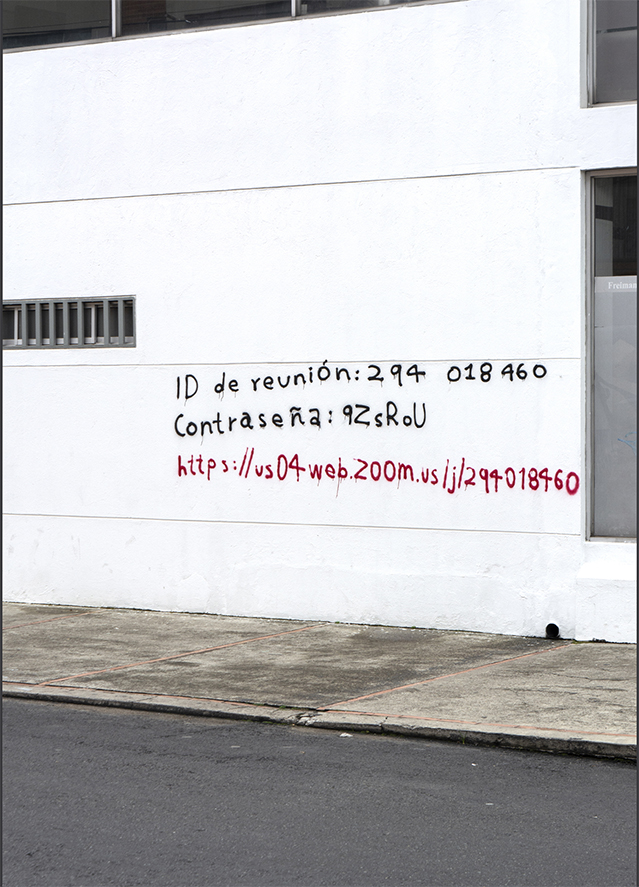 Freiman
ID de reunión: 294 018 460
Contraseña: 9ZsRoU
https://us04web.zoom.us/j/294018460